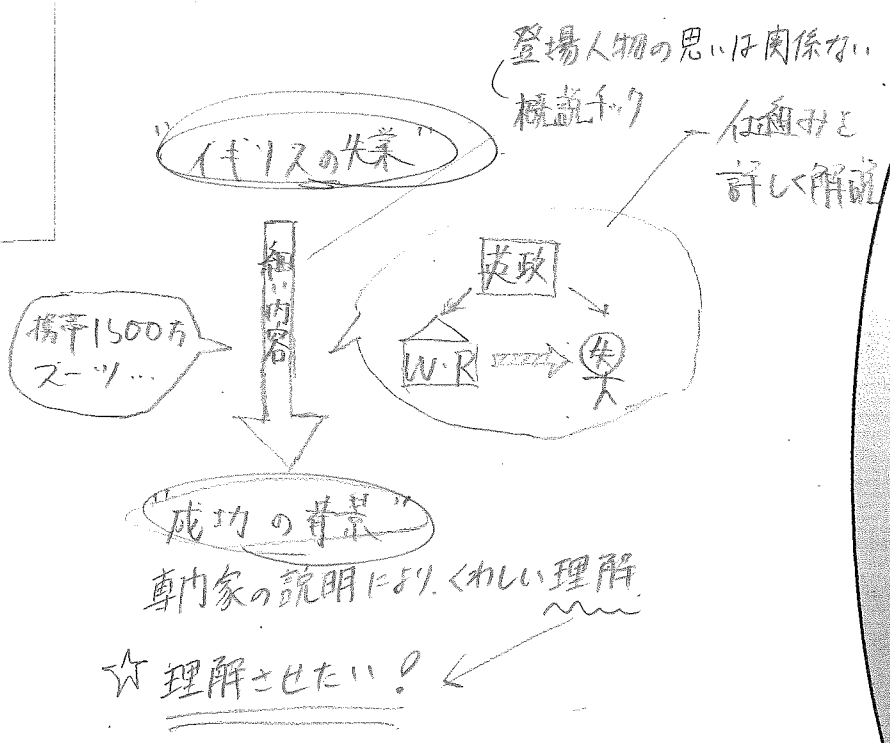 登場人物の思いは関係ない
概説チック
仕組みを
詳しく解説
"イギリスの失業"
細い内容
英政
携帯1500万
ズーツ…
W・R
失
"成功の背景"
専門家の説明により、くわしい理解
☆理解させたい!